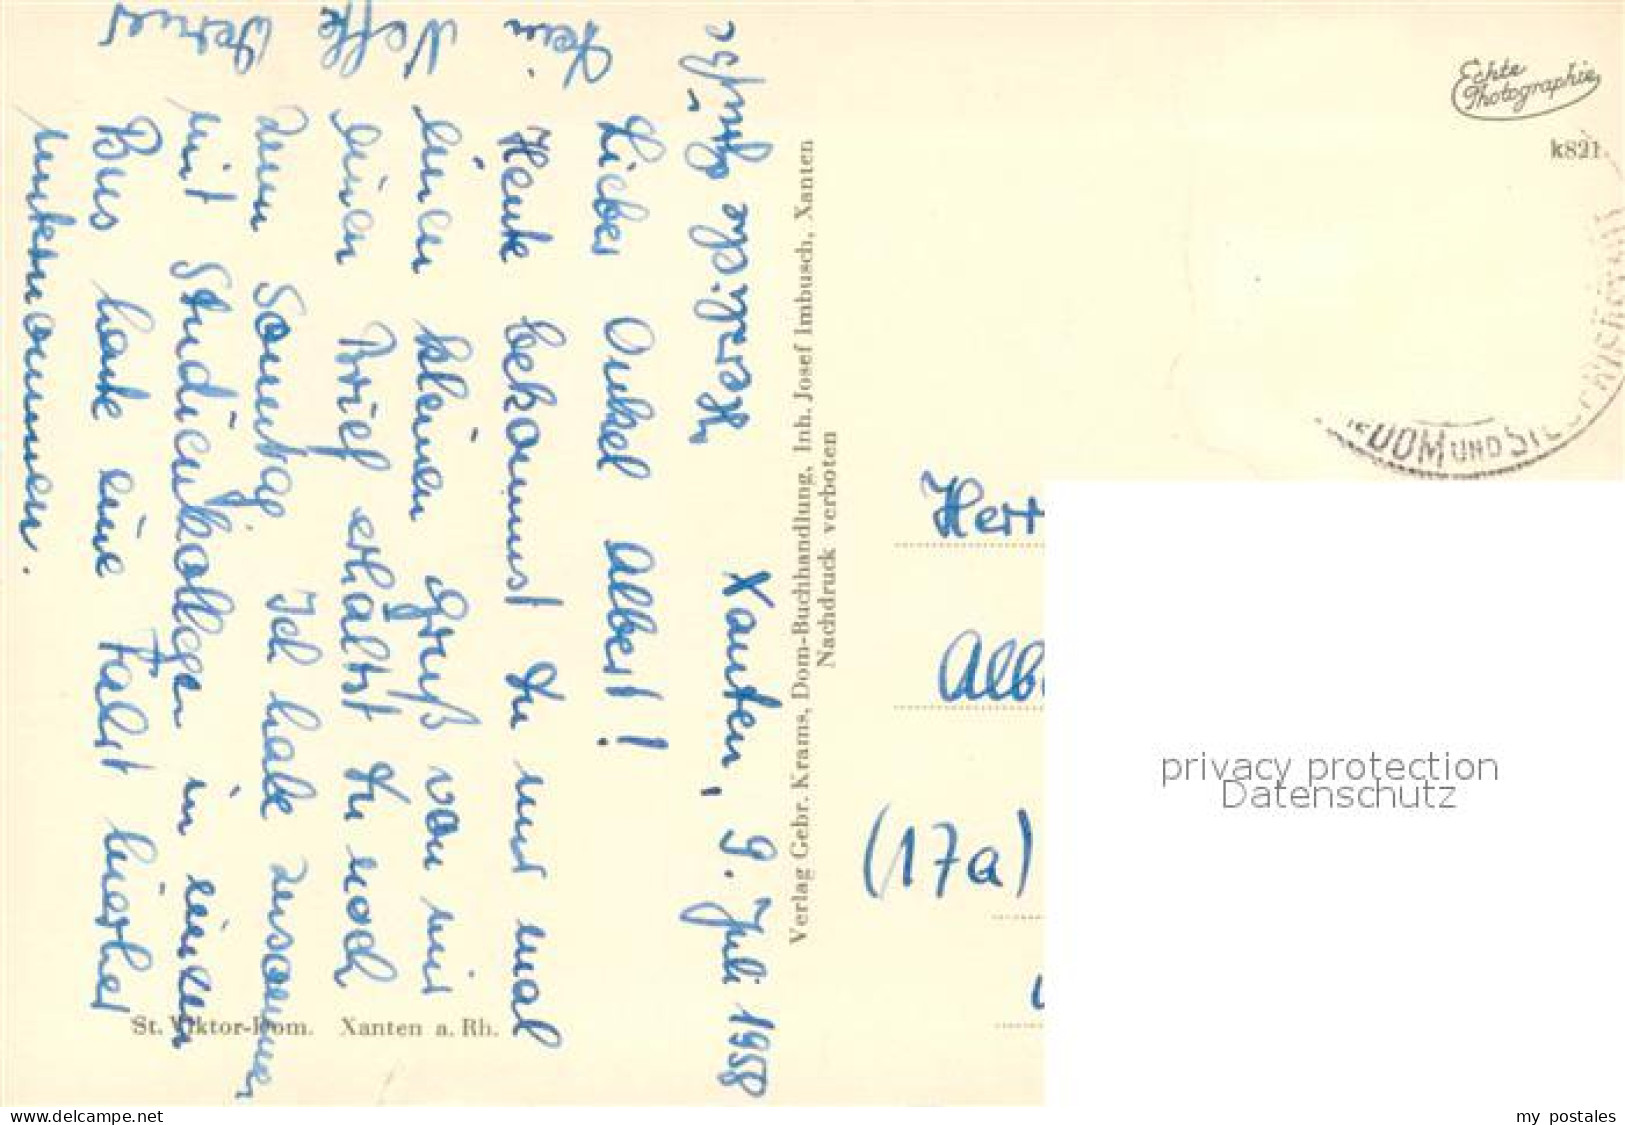 Xanten, 9. Juli 1958
Lieber Onkel Albert!
Heute bekommst Du nur mal
einen kleinen Gruß von mir
einen Brief erhältst Du noch
zum Sonntag. Ich habe zusammen
mit Studienkollegen in einem
Bus heute eine Fahrt hierher
unternommen.
Herzl. Grüße
Dein
Neffe
Werner
St. Viktor-Dom. Xanten a. Rh.
Verlag Gebr. Krams, Dom-Buchhandlung, Inh. Josef Imbusch, Xanten
Nachdruck verboten
Echte
Photographie
k821
DOM UND
Herr
Alb
(17a)
privacy protection
Datenschutz
www.delcampe.net
my postales